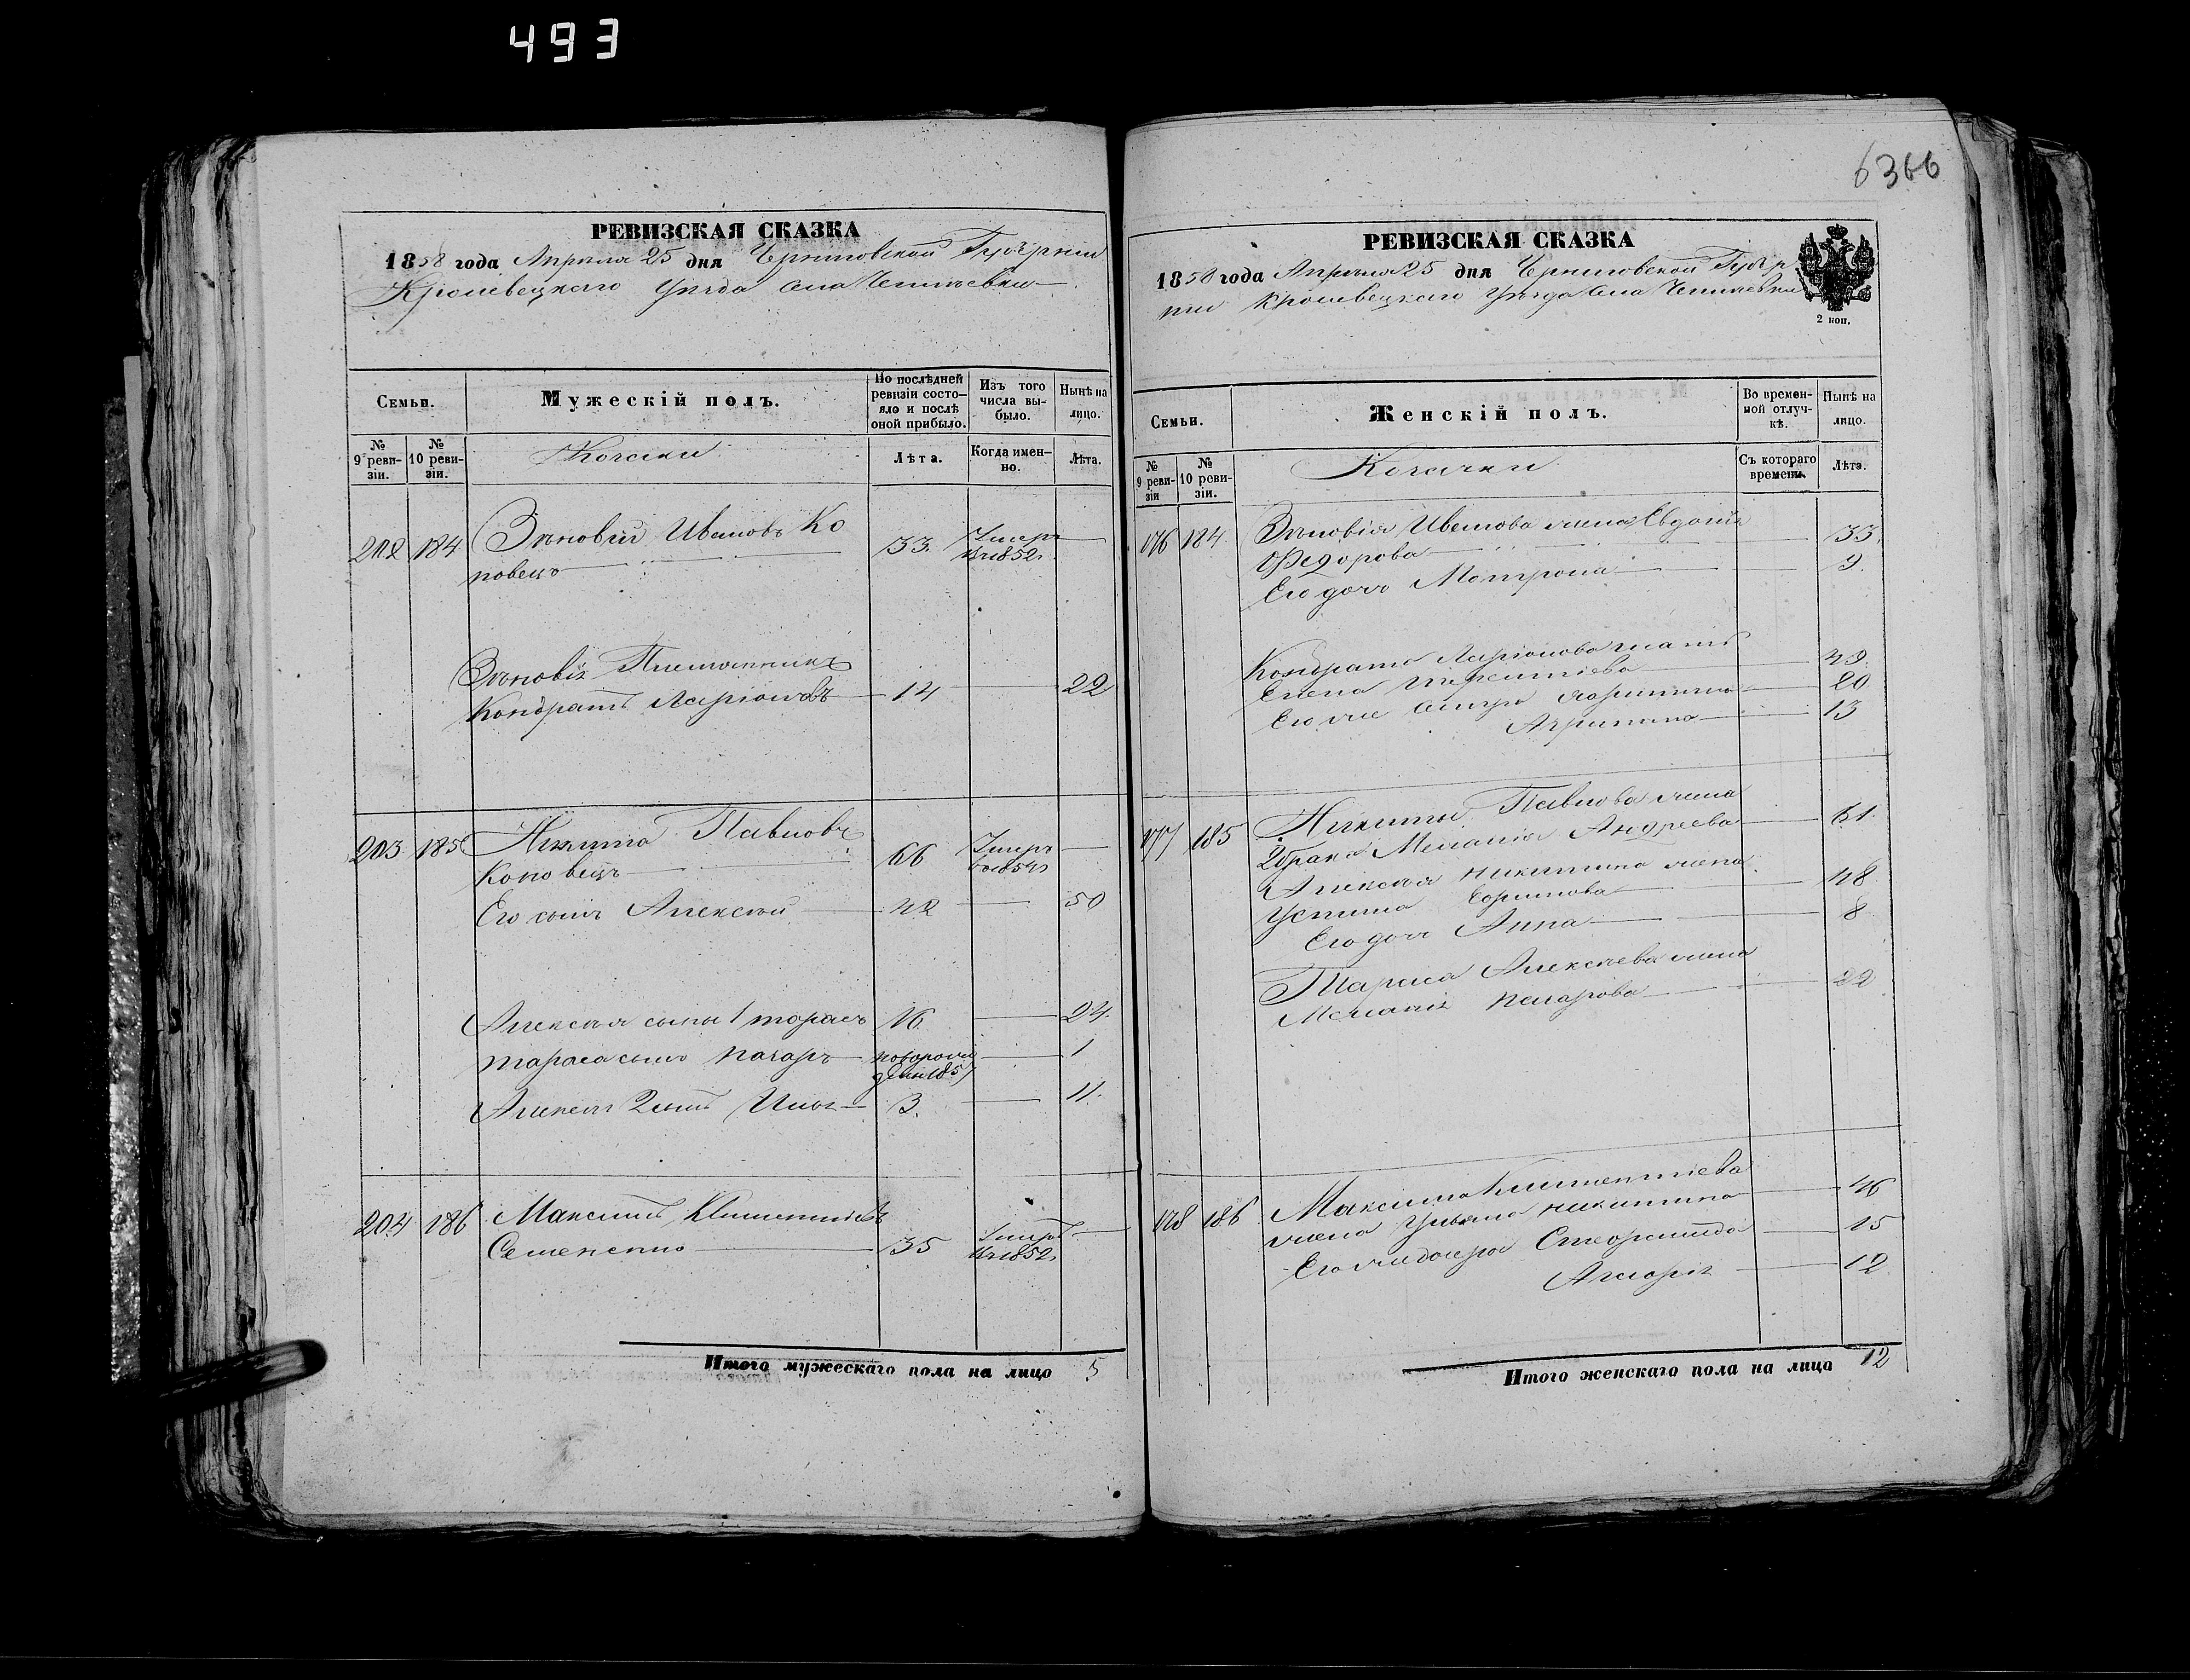 493
6366
РЕВИЗСКАЯ СКАЗКА
1858 года Апреля 25 дня Черниговской Губернии
Кролевецкаго Уезда Села
Семьи.
Мужескій полъ.
По послѣдней ревизіи состояло и послѣ оной прибыло.
Изъ того числа выбыло.
Нынѣ на лицо.
№ 9 ревизіи.
№ 10 ревизіи.
Козаки
Лѣта.
Когда именно.
Лѣта.
202 184 Зѣновій Ивановъ Ко 33. Умеръ
новецъ въ 1852г.
Зѣновія Племянникъ
Кондратъ Ларіоновъ 14 22
203 185 Никита Павловъ 66 Умеръ
Коновецъ въ 1854г
Его сынъ Алексѣй 42 50
Алексѣя сыны 1 Тарасъ 16 24.
Тараса сынъ Назаръ новорож 1
ден 1857
Алексѣя 2 сынъ Илья 3. 11.
204 186 Максимъ Климентіевъ Умеръ
Семененко 35 въ 1852г
Итого мужескаго пола на лицо 5
РЕВИЗСКАЯ СКАЗКА
1858 года Апреля 25 дня Черниговской Губер
нии Кролевецкаго Уезда Села
2 коп.
Семьи.
Женскій полъ.
Во временной отлучкѣ.
Нынѣ на лицо.
№ 9 ревизіи
№ 10 ревизіи.
Козачки
Съ котораго времени.
Лѣта.
176 184. Зѣновія Иванова жена Евдокія
Федорова 33.
Его дочь Мотрона 9.
Кондрата Ларіонова мать
Елена 49.
Его же сестры 20
Агрипина 13
177 185 Никиты Павлова жена
2 брака Меланія Андреева 61.
Алексѣя Никитина жена
Устина Ефимова 48.
Его дочь Анна 8
Тараса Алексѣева жена
Меланія Назарова 22
178 186 Максима Климентіева
жена Ульяна Никитина 46
Его же дочери 15
12.
Итого женскаго пола на лицо 12